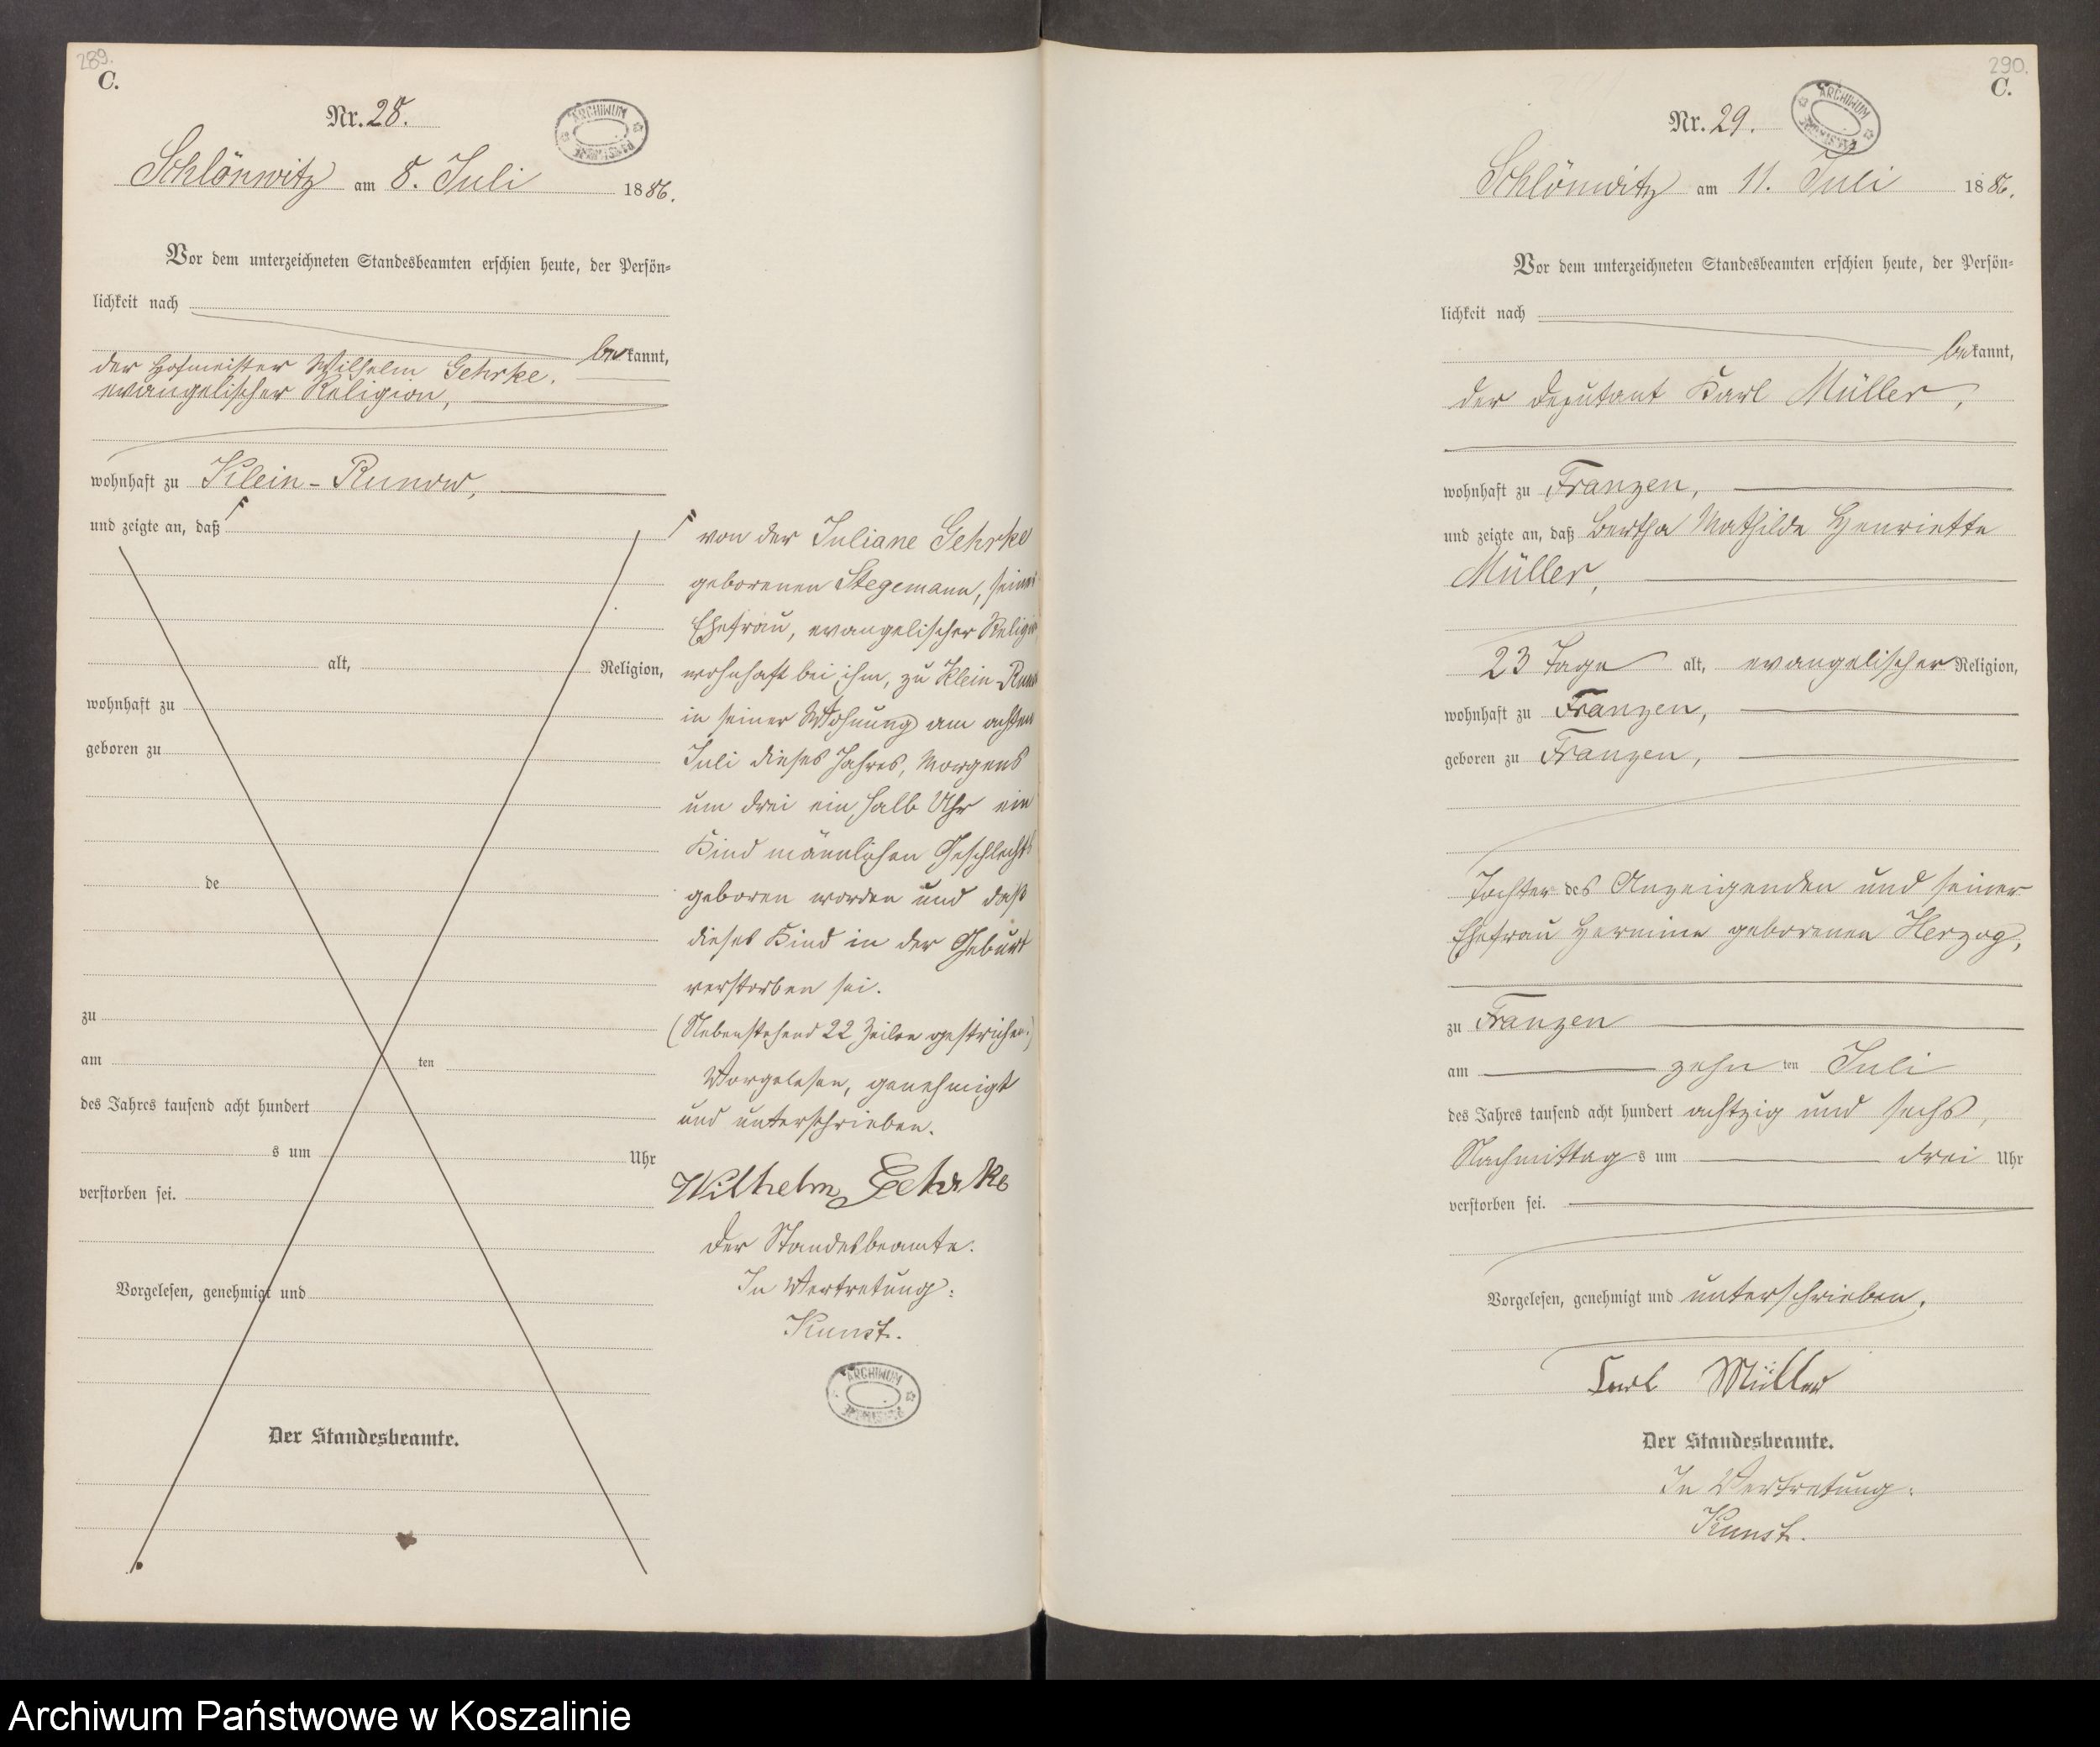 289.
C.
Nr. 28.
ARCHIWUM
PAŃSTWOWE
Schlönwitz am 8. Juli 1886.
Vor dem unterzeichneten Standesbeamten erschien heute, der Persön-
lichkeit nach
bekannt,
der Hofmeister Wilhelm Gehrke.
evangelischer Religion,
wohnhaft zu Klein-Runow,
und zeigte an, daß
alt, Religion,
wohnhaft zu
geboren zu
de
zu
am ten
des Jahres tausend acht hundert
s um Uhr
verstorben sei.
Vorgelesen, genehmigt und
Der Standesbeamte.
von der Juliane Gehrke
geborenen Stegemann, seiner
Ehefrau, evangelischer Religion
wohnhaft bei ihm, zu Klein-Runow
in seiner Wohnung am achten
Juli dieses Jahres, Morgens
um drei ein halb Uhr ein
Kind männlichen Geschlechts
geboren worden und daß
dieses Kind in der Geburt
verstorben sei.
(Nebenstehend 22 Zeilen gestrichen.)
Vorgelesen, genehmigt
und unterschrieben.
Wilhelm Gehrke
Der Standesbeamte.
In Vertretung:
Kunst.
ARCHIWUM
PAŃSTWOWE
290.
C.
Nr. 29.
ARCHIWUM
PAŃSTWOWE
Schlönwitz am 11. Juli 1886.
Vor dem unterzeichneten Standesbeamten erschien heute, der Persön-
lichkeit nach
bekannt,
der Deputant Karl Müller,
wohnhaft zu Franzen,
und zeigte an, daß Bertha Mathilde Henriette
Müller,
23 Tage alt, evangelischer Religion,
wohnhaft zu Franzen,
geboren zu Franzen,
Tochter des Anzeigenden und seiner
Ehefrau Hermine geborenen Herzog,
zu Franzen
am zehn ten Juli
des Jahres tausend acht hundert achtzig und sechs,
Nachmittags um drei Uhr
verstorben sei.
Vorgelesen, genehmigt und unterschrieben.
Carl Müller
Der Standesbeamte.
In Vertretung:
Kunst.
Archiwum Państwowe w Koszalinie